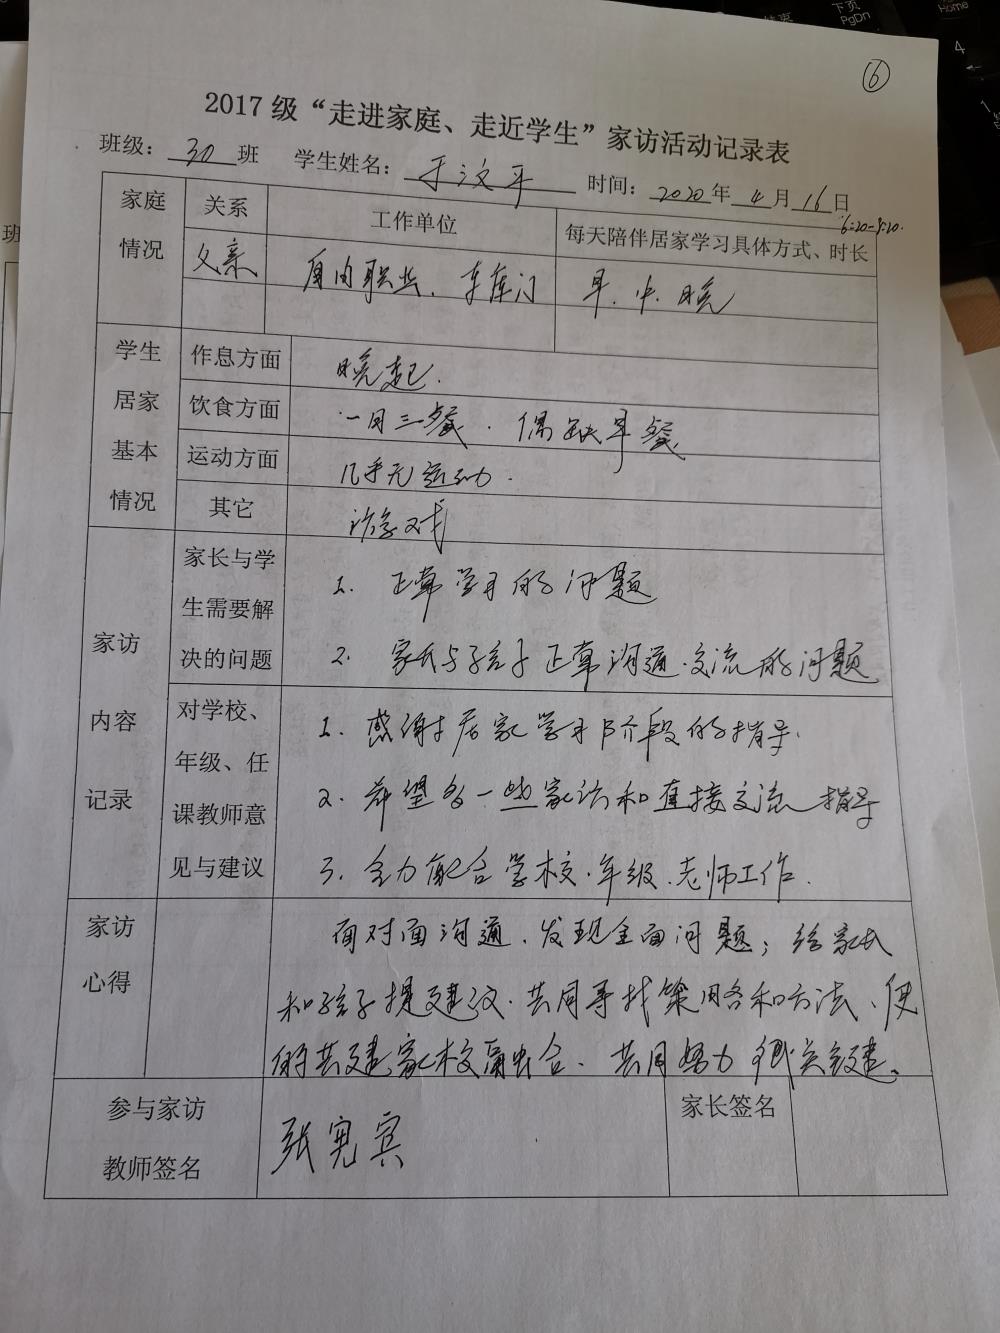 下页
PgDn
Home
4
班
⑥
2017级“走进家庭、走近学生”家访活动记录表
班级：30班 学生姓名：于汶平 时间：2020年4月16日
6:20-9:20.
家庭情况
关系 工作单位 每天陪伴居家学习具体方式、时长
父亲 自由职业、车库门 早.中.晚
学生居家基本情况
作息方面 晚起.
饮食方面 一日三餐.偶缺早餐
运动方面 几乎无运动.
其它 游戏
家访内容记录
家长与学生需要解决的问题
1. 正常学习的问题
2. 家长与孩子正常沟通.交流的问题
对学校、年级、任课教师意见与建议
1. 感谢居家学习阶段的指导.
2. 希望多一些家访和直接交流指导
3. 全力配合学校.年级.老师工作.
家访心得
面对面沟通、发现全面问题；给家长
和孩子提建议.共同寻找策略和方法、使
的共建家校、共同努力是关键。
参与家访教师签名 张宪宾 家长签名